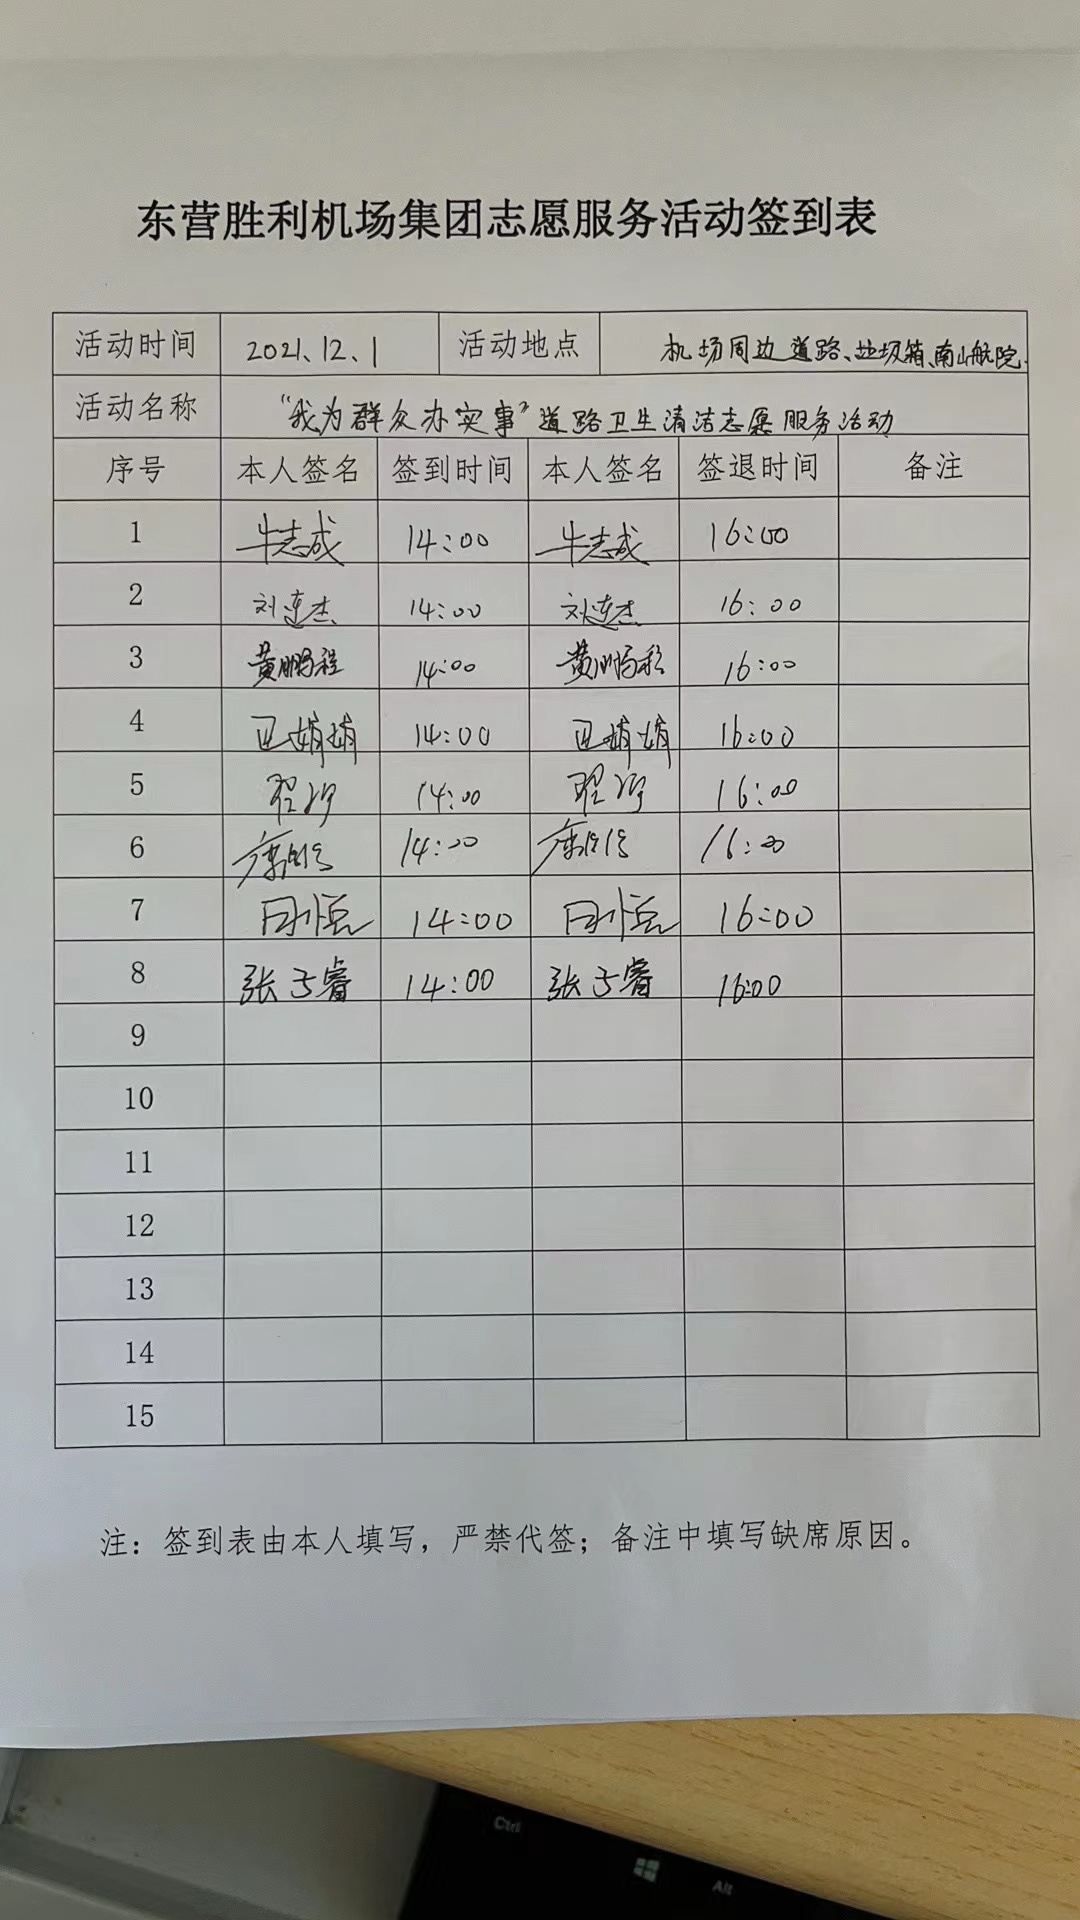 东营胜利机场集团志愿服务活动签到表
活动时间 2021、12、1 活动地点 机场周边道路、垃圾箱、南山航院、
活动名称 “我为群众办实事”道路卫生清洁志愿服务活动
序号 本人签名 签到时间 本人签名 签退时间 备注
1 牛志成 14:00 牛志成 16:00
2 刘连杰 14:00 刘连杰 16:00
3 黄鹏程 14:00 黄鹏程 16:00
4 娟娟 14:00 娟娟 16:00
5 14:00 16:00
6 14:00 16:00
7 14:00 16:00
8 张子睿 14:00 张子睿 16:00
9
10
11
12
13
14
15
注：签到表由本人填写，严禁代签；备注中填写缺席原因。
Ctrl
Alt